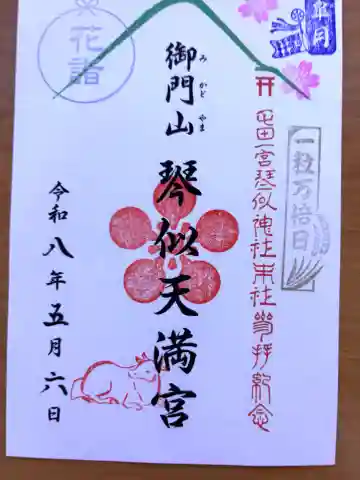 皐月
一粒万倍日
琴似神社末社参拝紀念
御門山
みかどやま
琴似天満宮
花詣
令和八年五月六日